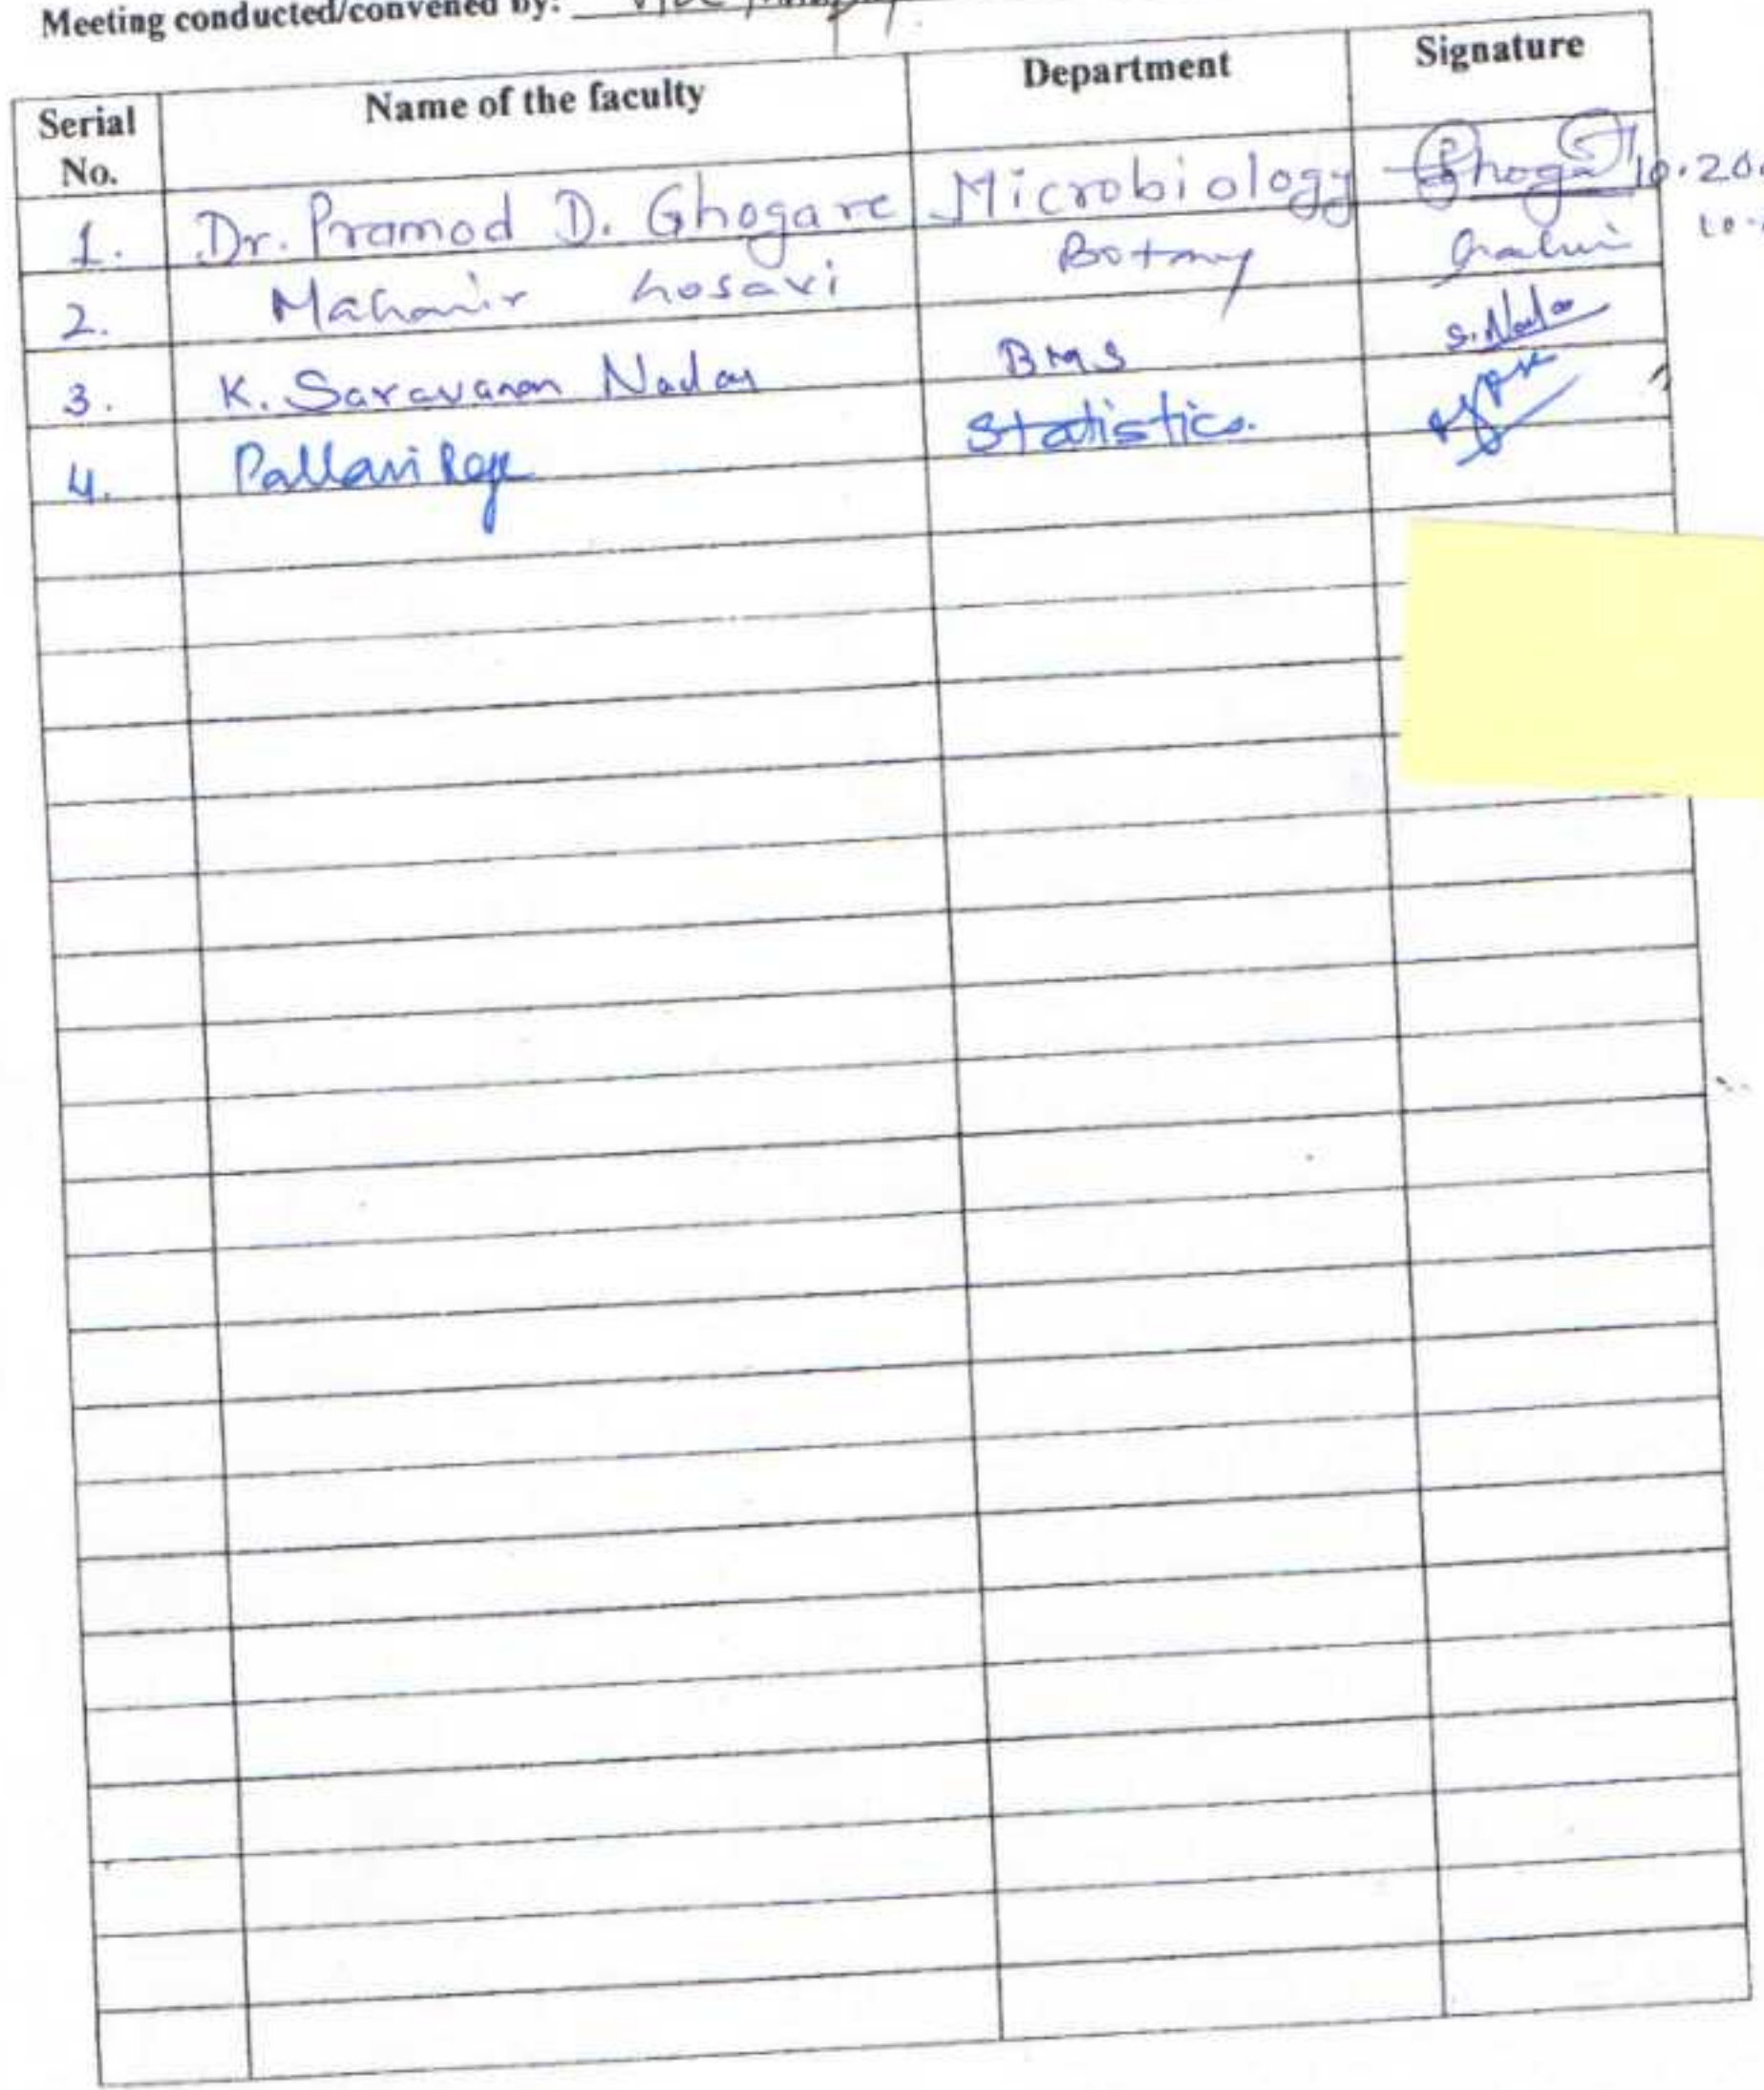 Meeting conducted/convened by:
Serial No. Name of the faculty Department Signature
1. Dr. Pramod D. Ghogare Microbiology 10.20
2. Mahavir Gosavi Botany
3. K. Saravanan Nadar BMS S. Nadar
4. Pallavi Rege Statistics.